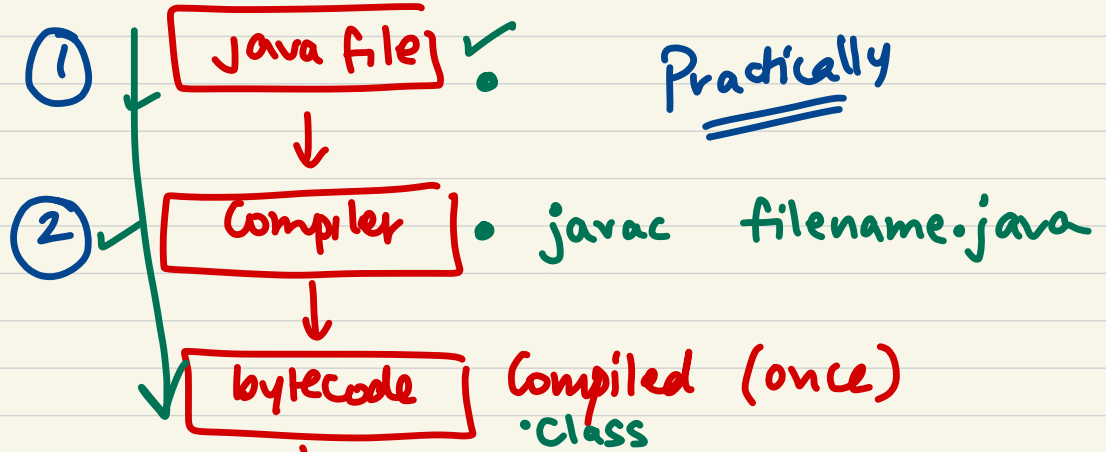 1 java file
Practically
2 Compiler • javac filename.java
bytecode Compiled (once)
.class